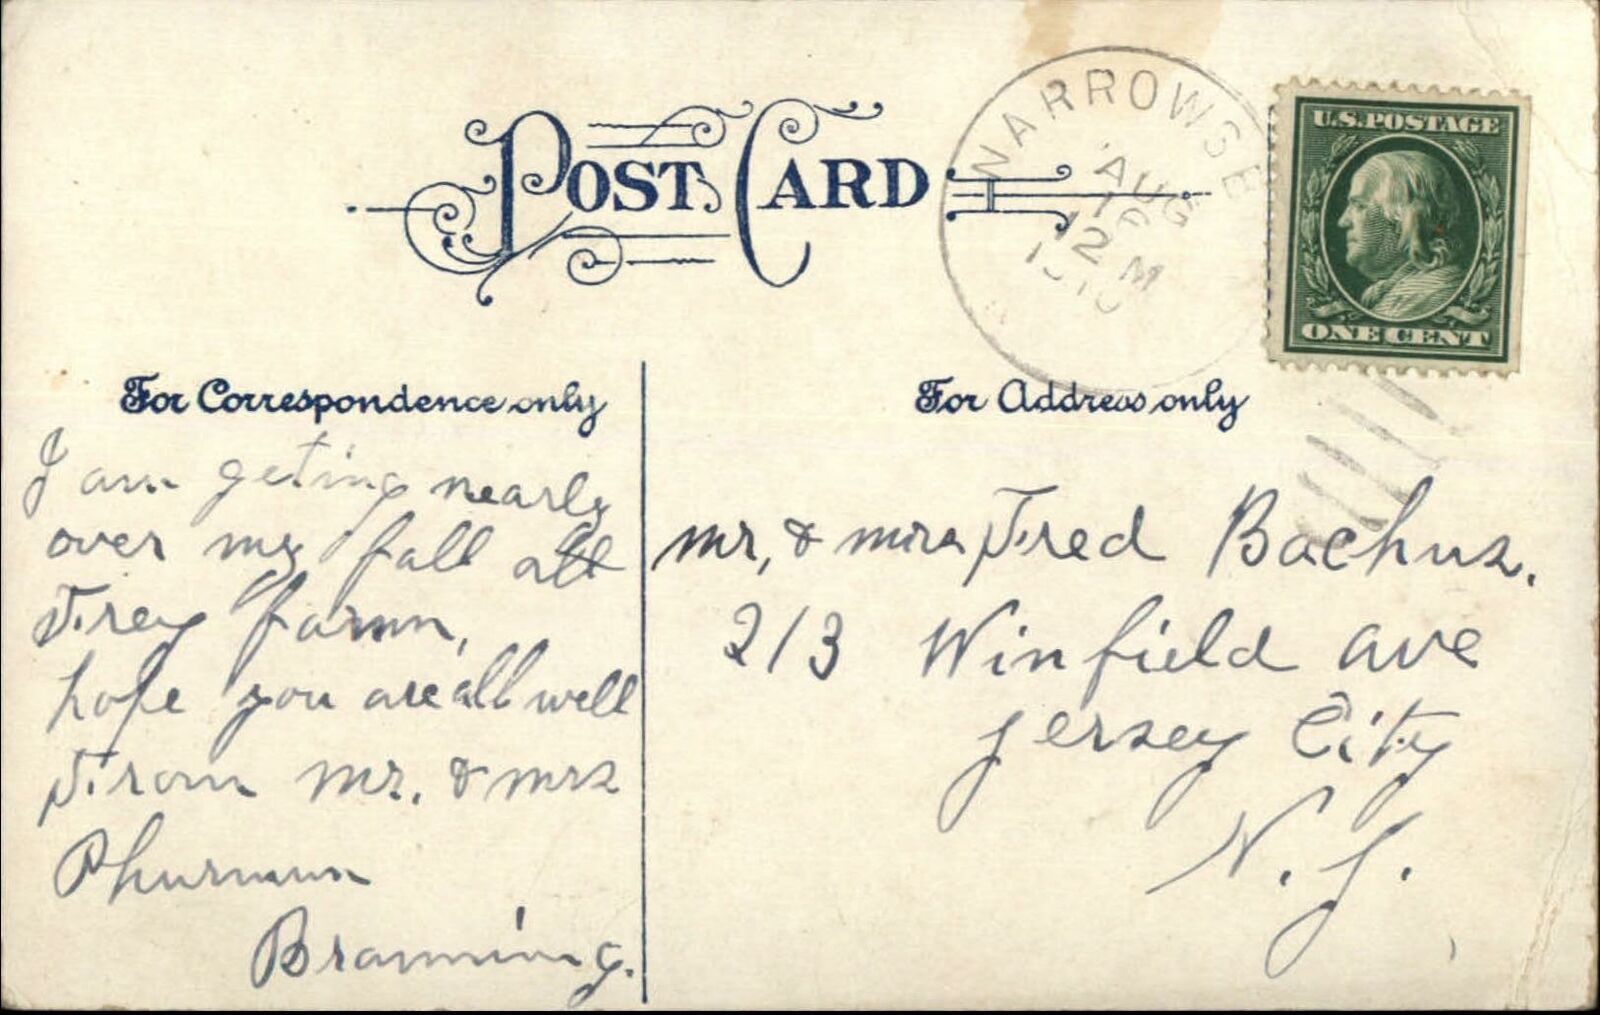 POST CARD
NARROWSB
AUG
12 M
U.S. POSTAGE
ONE CENT
For Correspondence only
For Address only
I am geting nearly
over my fall att
Frey farm,
hope you are all well
From mr. & mrs
Phurman
Branning.
mr, & mrs Fred Bachus.
213 Winfield ave
Jersey City
N. J.